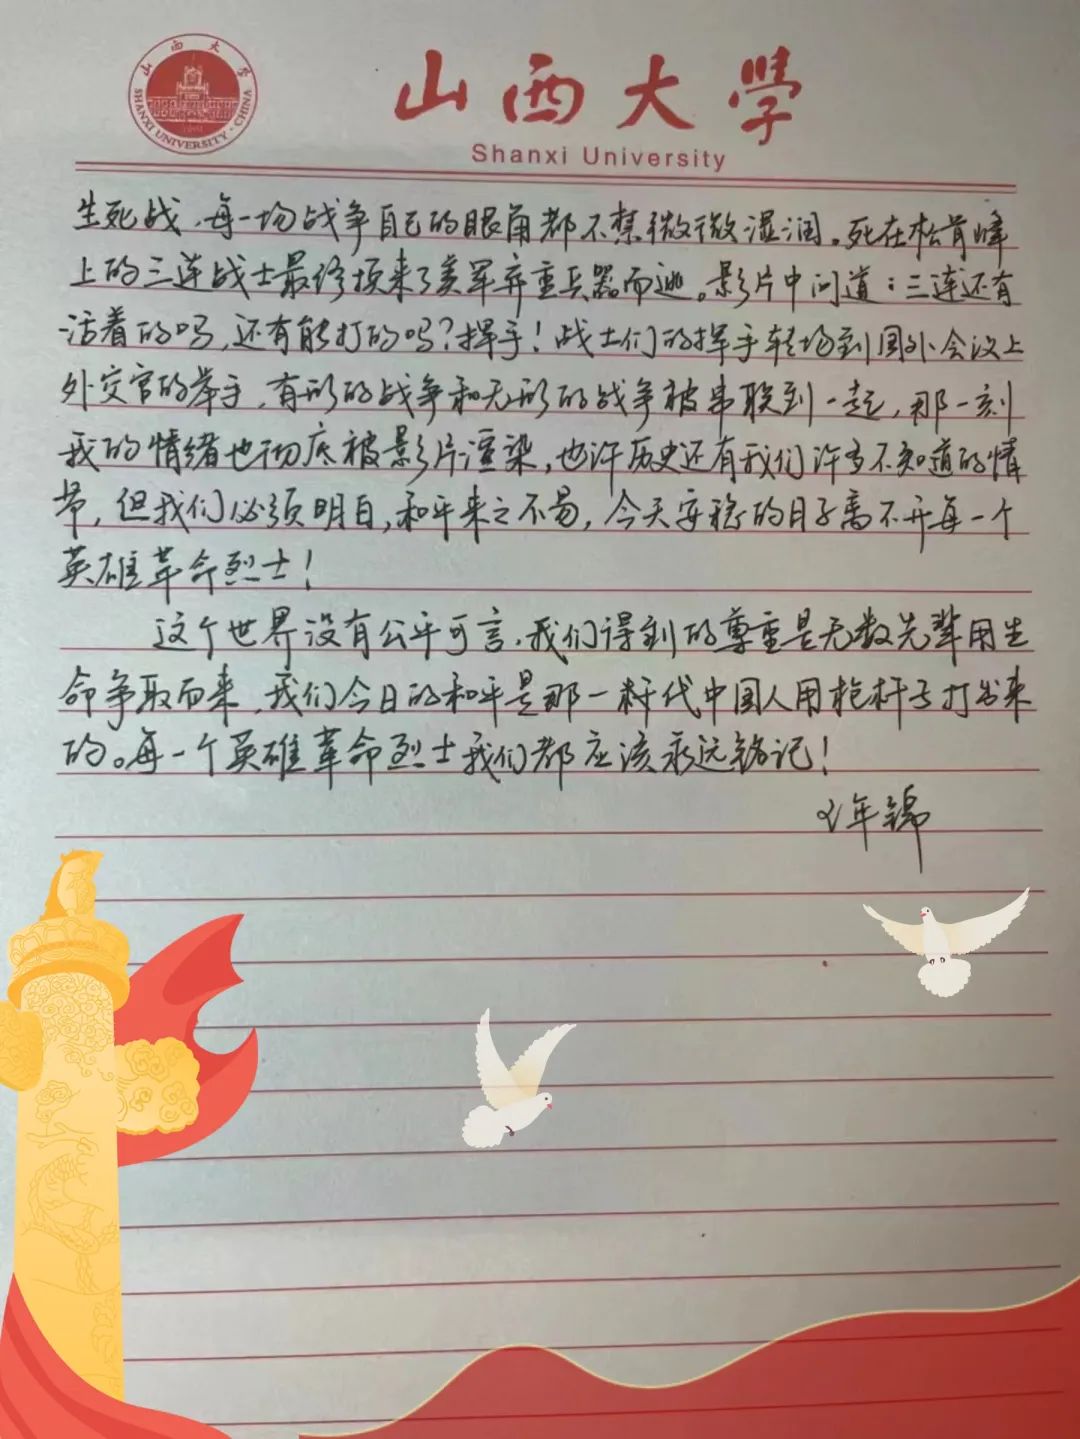 山西大學
SHANXI UNIVERSITY·CHINA
1902
山西大學
Shanxi University
生死战，每一场战争自己的眼角都不禁微微湿润。死在松骨峰
上的三连战士最终换来了美军弃重兵器而逃。影片中问道：三连还有
活着的吗，还有能打的吗？挥手！战士们的挥手转场到国外会议上
外交官的举手，有形的战争和无形的战争被串联到一起，那一刻
我的情绪也彻底被影片渲染，也许历史还有我们许多不知道的情
节，但我们必须明白，和平来之不易，今天安稳的日子离不开每一个
英雄革命烈士！
这个世界没有公平可言，我们得到的尊重是无数先辈用生
命争取而来，我们今日的和平是那一辈代中国人用枪杆子打出来
的。每一个英雄革命烈士我们都应该永远铭记！
年锦